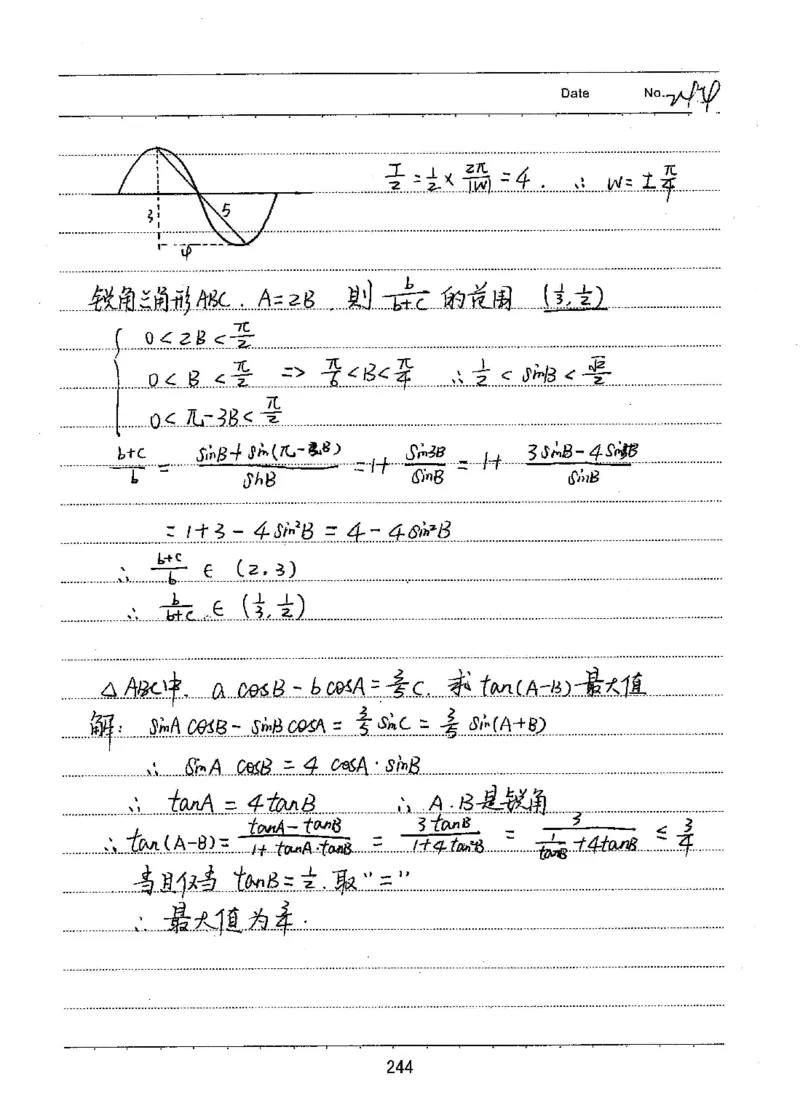 Date No. 244
T/2 = 1/2 × 2π/|W| = 4. ∴ W = ±π/4
3 5
4
锐角三角形ABC. A=2B. 则 b/(b+c) 的范围 (1/3, 1/2)
{ 0<2B<π/2
0<B<π/2 => π/6<B<π/4 ∴ 1/2 < sinB < √2/2
0<π-3B<π/2
(b+c)/b = (sinB+sin(π-3B))/sinB = 1+ sin3B/sinB = 1+ (3sinB-4sin³B)/sinB
= 1+3-4sin²B = 4-4sin²B
∴ (b+c)/b ∈ (2.3)
∴ b/(b+c) ∈ (1/3, 1/2)
△ABC中. a cosB - b cosA = 3/5 c. 求 tan(A-B) 最大值
解: sinA cosB - sinB cosA = 3/5 sinC = 3/5 sin(A+B)
∴ sinA cosB = 4 cosA·sinB
∴ tanA = 4tanB ∴ A.B是锐角
∴ tan(A-B) = (tanA-tanB)/(1+tanA·tanB) = 3tanB/(1+4tan²B) = 3/(1/tanB+4tanB) ≤ 3/4
当且仅当 tanB=1/2. 取"="
∴ 最大值为 3/4.
244